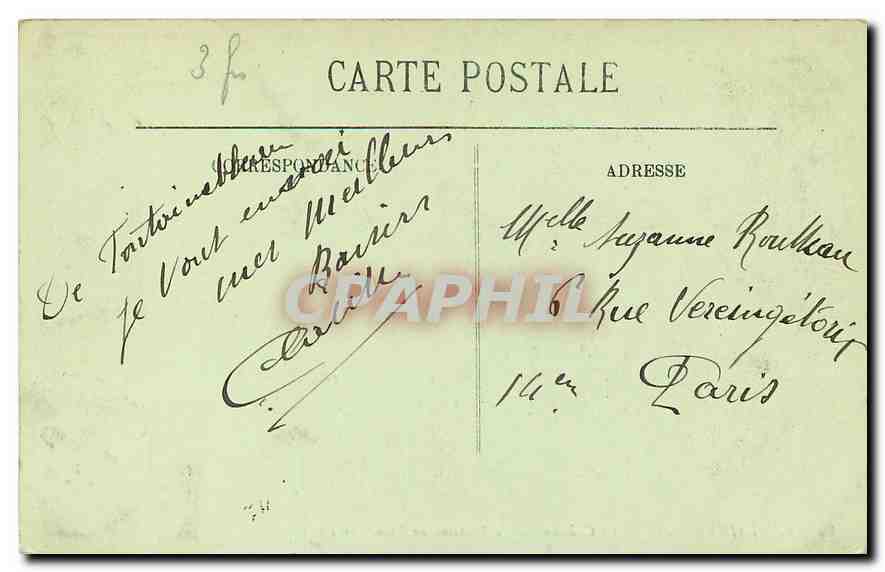 3 fr
CARTE POSTALE
CORRESPONDANCE
De Fontainebleau
je vous envoi
mes Meilleurs
Baisers
ADRESSE
Mlle Suzanne
6 Rue Vercingétorix
14em Paris
CPAPHIL